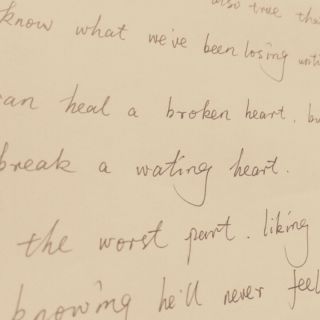 also true that
know what we've been losing until
can heal a broken heart, but
break a wating heart.
the worst part. liking
knowing he'll never feel